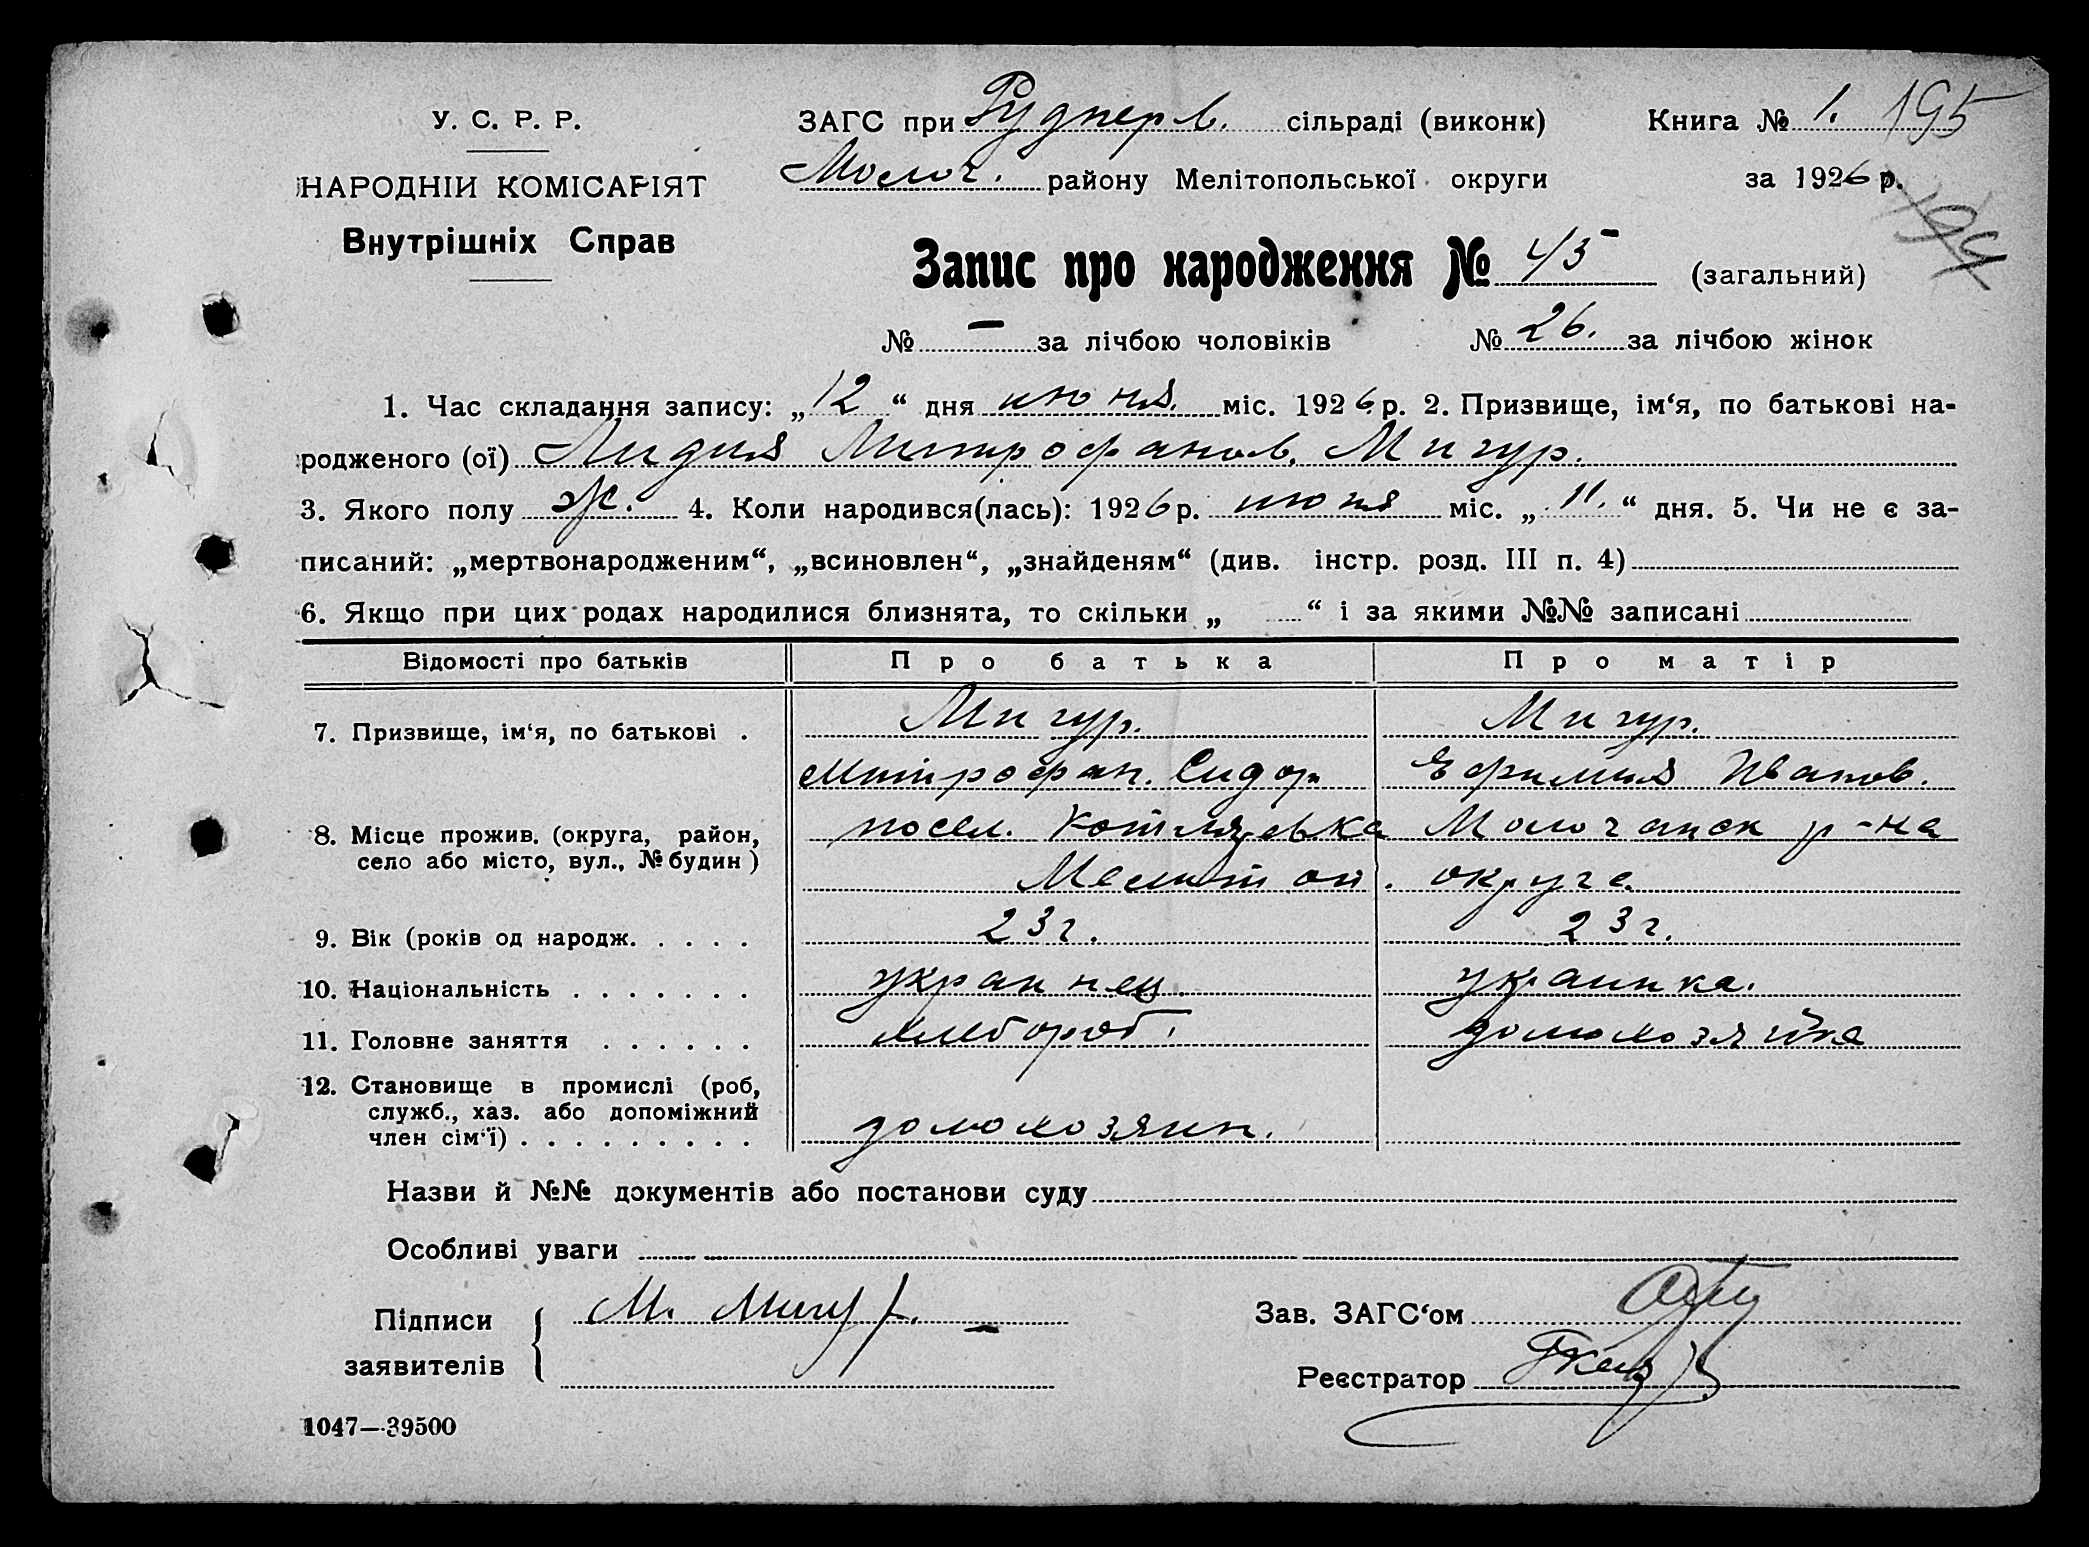 У. С. Р. Р.
НАРОДНІЙ КОМІСАРІЯТ
Внутрішніх Справ
ЗАГС при Рудперв. сільраді (виконк)
Молоч. району Мелітопольської округи
Книга № 1. 195
за 1926 р.
194
Запис про народження № 45 (загальний)
№ — за лічбою чоловіків № 26. за лічбою жінок
1. Час складання запису: „12“ дня июня міс. 1926 р. 2. Призвище, ім‘я, по батькові на-
родженого (ої) Лидия Митрофанов. Мигур.
3. Якого полу ж. 4. Коли народився(лась): 1926 р. июня міс. „11.“ дня. 5. Чи не є за-
писаний: „мертвонародженим“, „всиновлен“, „знайденям“ (див. інстр. розд. III п. 4)
6. Якщо при цих родах народилися близнята, то скільки „ “ і за якими №№ записані
Відомості про батьків Про батька Про матір
7. Призвище, ім‘я, по батькові . Мигур. Мигур.
Митрофан. Сидор. Ефимия Иванов.
8. Місце прожив. (округа, район, посел. Котляревка Молочанск р-на
село або місто, вул., № будин) Мелитоп. округе.
9. Вік (років од народж. . . . . 23 г. 23 г.
10. Національність . . . . . . . украинец. украинка.
11. Головне заняття . . . . . . хлебороб. домохозяйка
12. Становище в промислі (роб,
служб., хаз. або допоміжний
член сім‘ї) . . . . . . . . . домохозяин.
Назви й №№ документів або постанови суду
Особливі уваги
Підписи М. Мигур.
заявителів
Зав. ЗАГС‘ом
Реєстратор
1047—39500